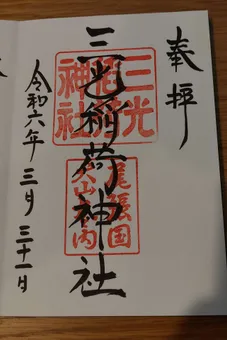 奉拝
三光稲荷神社
三光
神社
尾張国
令和六年三月三十一日